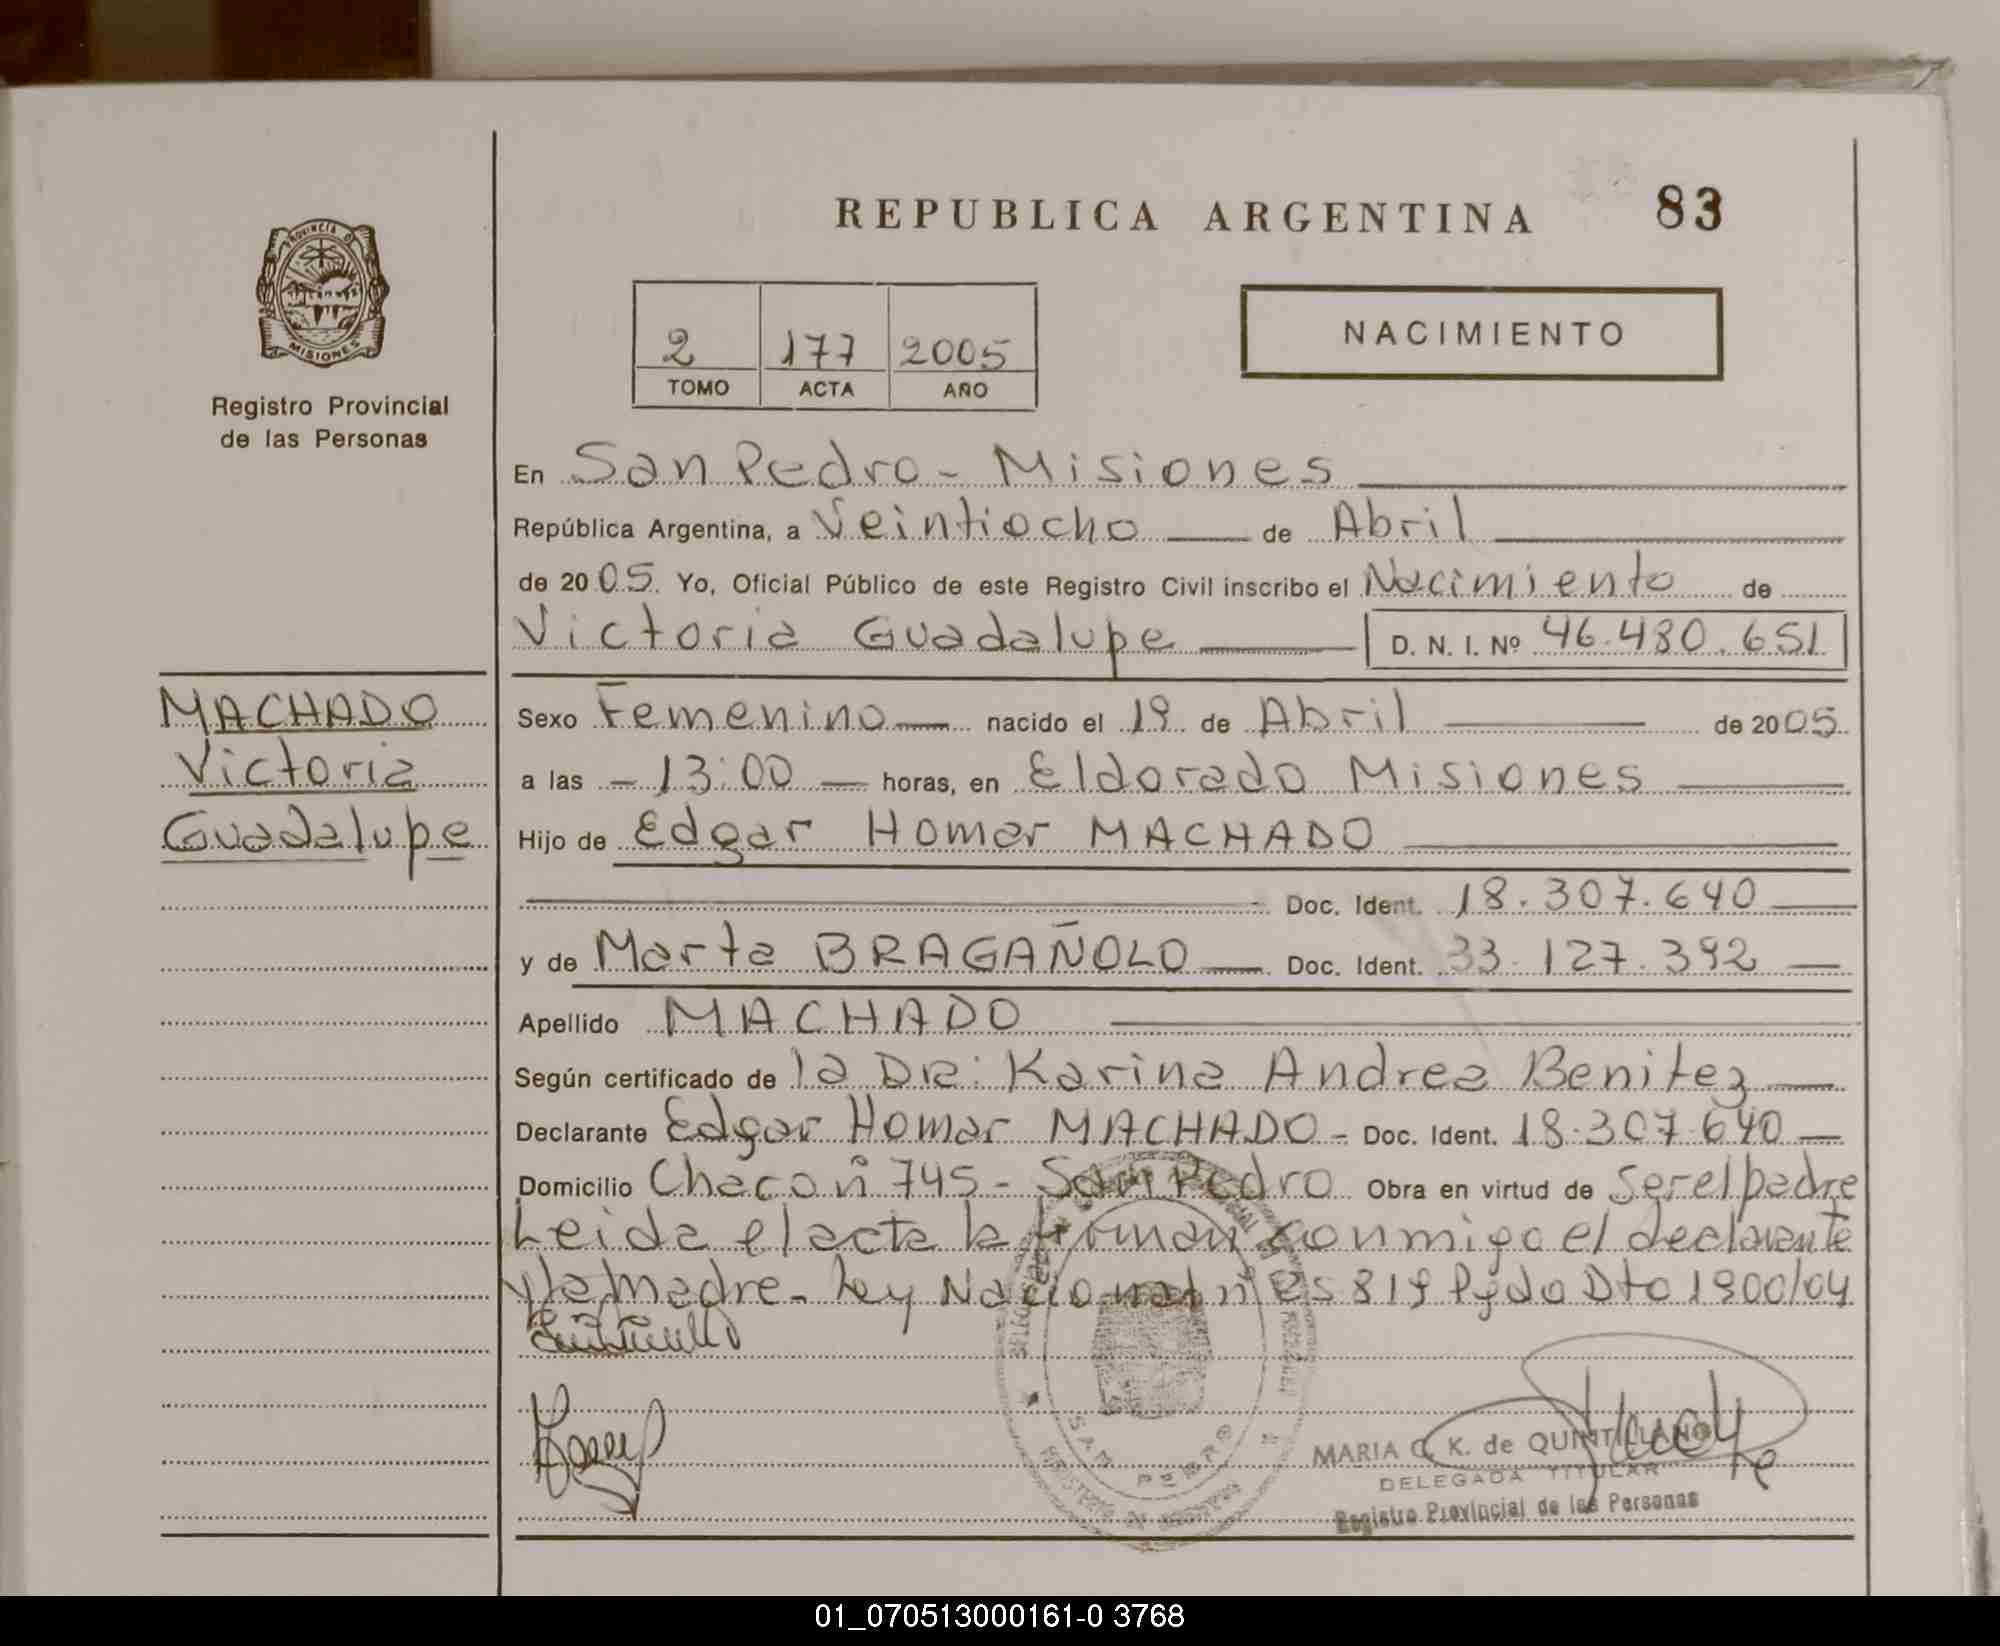 REPUBLICA ARGENTINA 83
PROVINCIA DE
MISIONES
Registro Provincial
de las Personas
2 177 2005
TOMO ACTA AÑO
NACIMIENTO
En San Pedro - Misiones
República Argentina, a Veintiocho de Abril
de 2005. Yo, Oficial Público de este Registro Civil inscribo el Nacimiento de
Victoria Guadalupe D. N. I. Nº 46.480.651
MACHADO
Victoria
Guadalupe
Sexo Femenino nacido el 19 de Abril de 2005
a las - 13:00 - horas, en Eldorado Misiones
Hijo de Edgar Homar MACHADO
Doc. Ident. 18.307.640
y de Marta BRAGAÑOLO Doc. Ident. 33.127.392
Apellido MACHADO
Según certificado de la DRa: Karina Andrea Benitez
Declarante Edgar Homar MACHADO - Doc. Ident. 18.307.640
Domicilio Chaco nº 745 - San Pedro Obra en virtud de Ser el padre
Leida el acta la firman conmigo el declarante
y la madre. Ley Nacional nº 25819 Pgdo Dto 1900/04
SAN PEDRO
MARIA C. K. de QUINTILLANO
DELEGADA TITULAR
Registro Provincial de las Personas
01_070513000161-0 3768